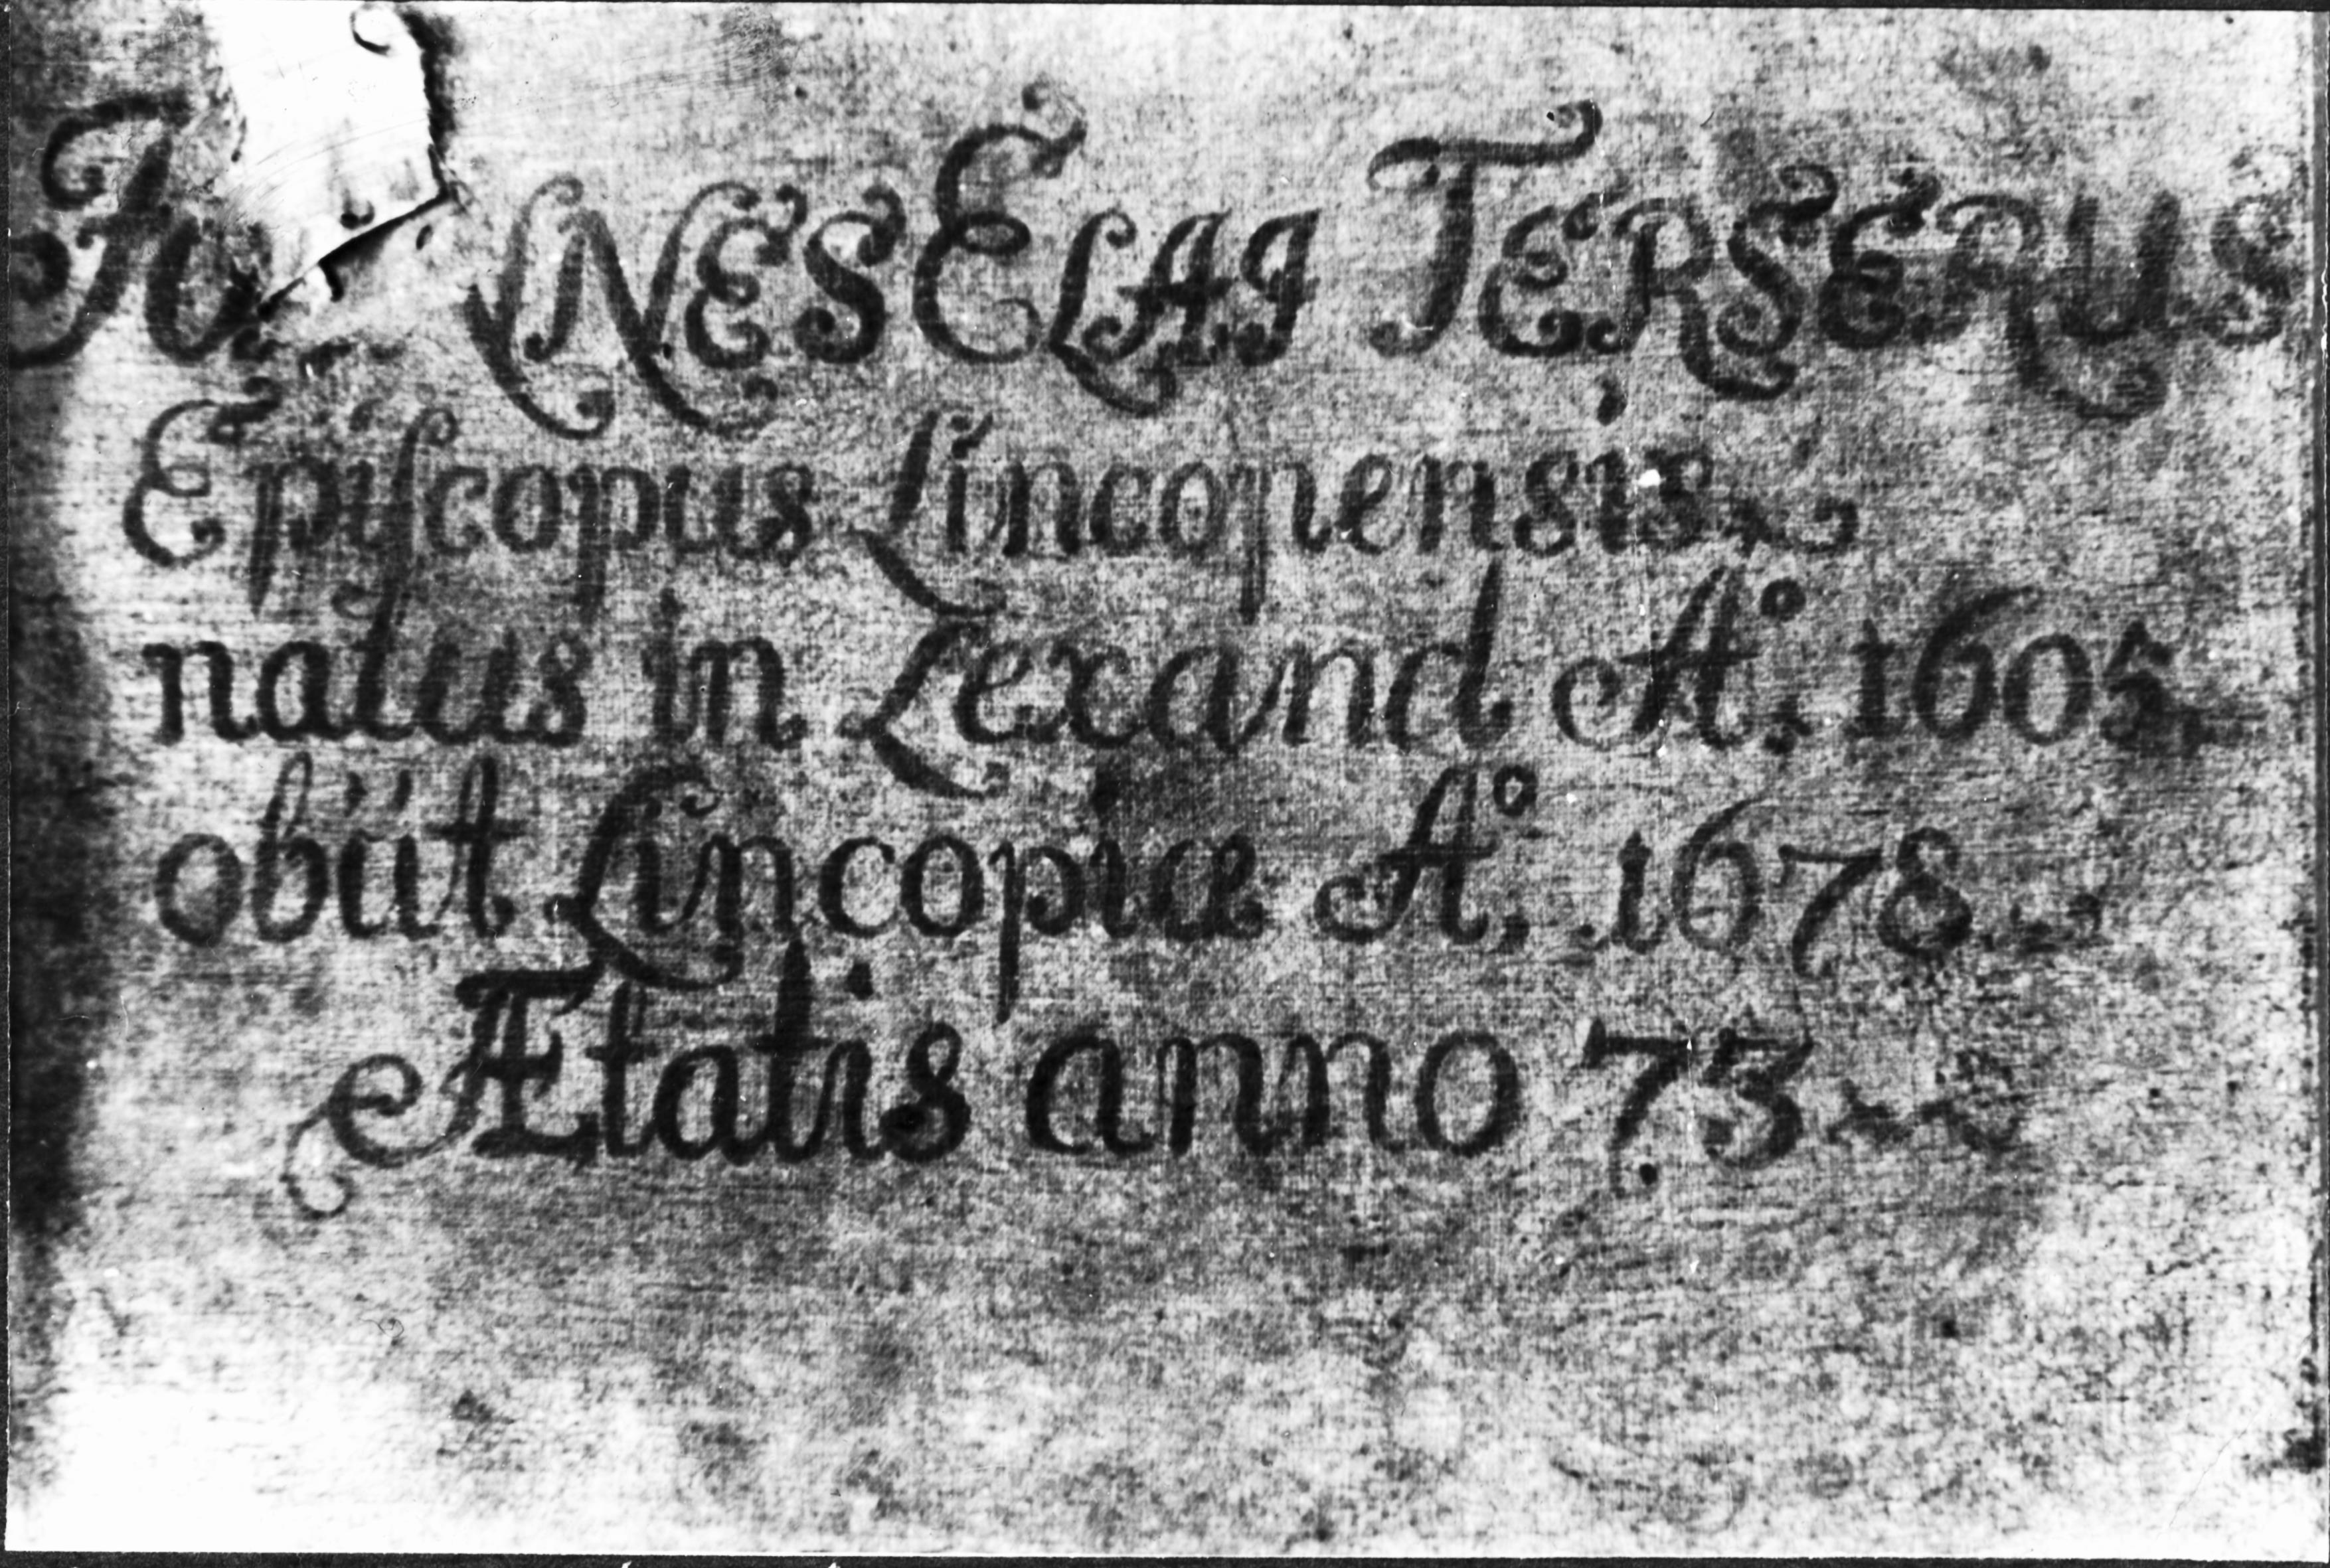 Jo NES ELAI TERSERUS
Epiſcopus Lincopensis
natus in Lexand Aº. 1605.
obiit Lincopiæ Aº. 1678.
Ætatis anno 73